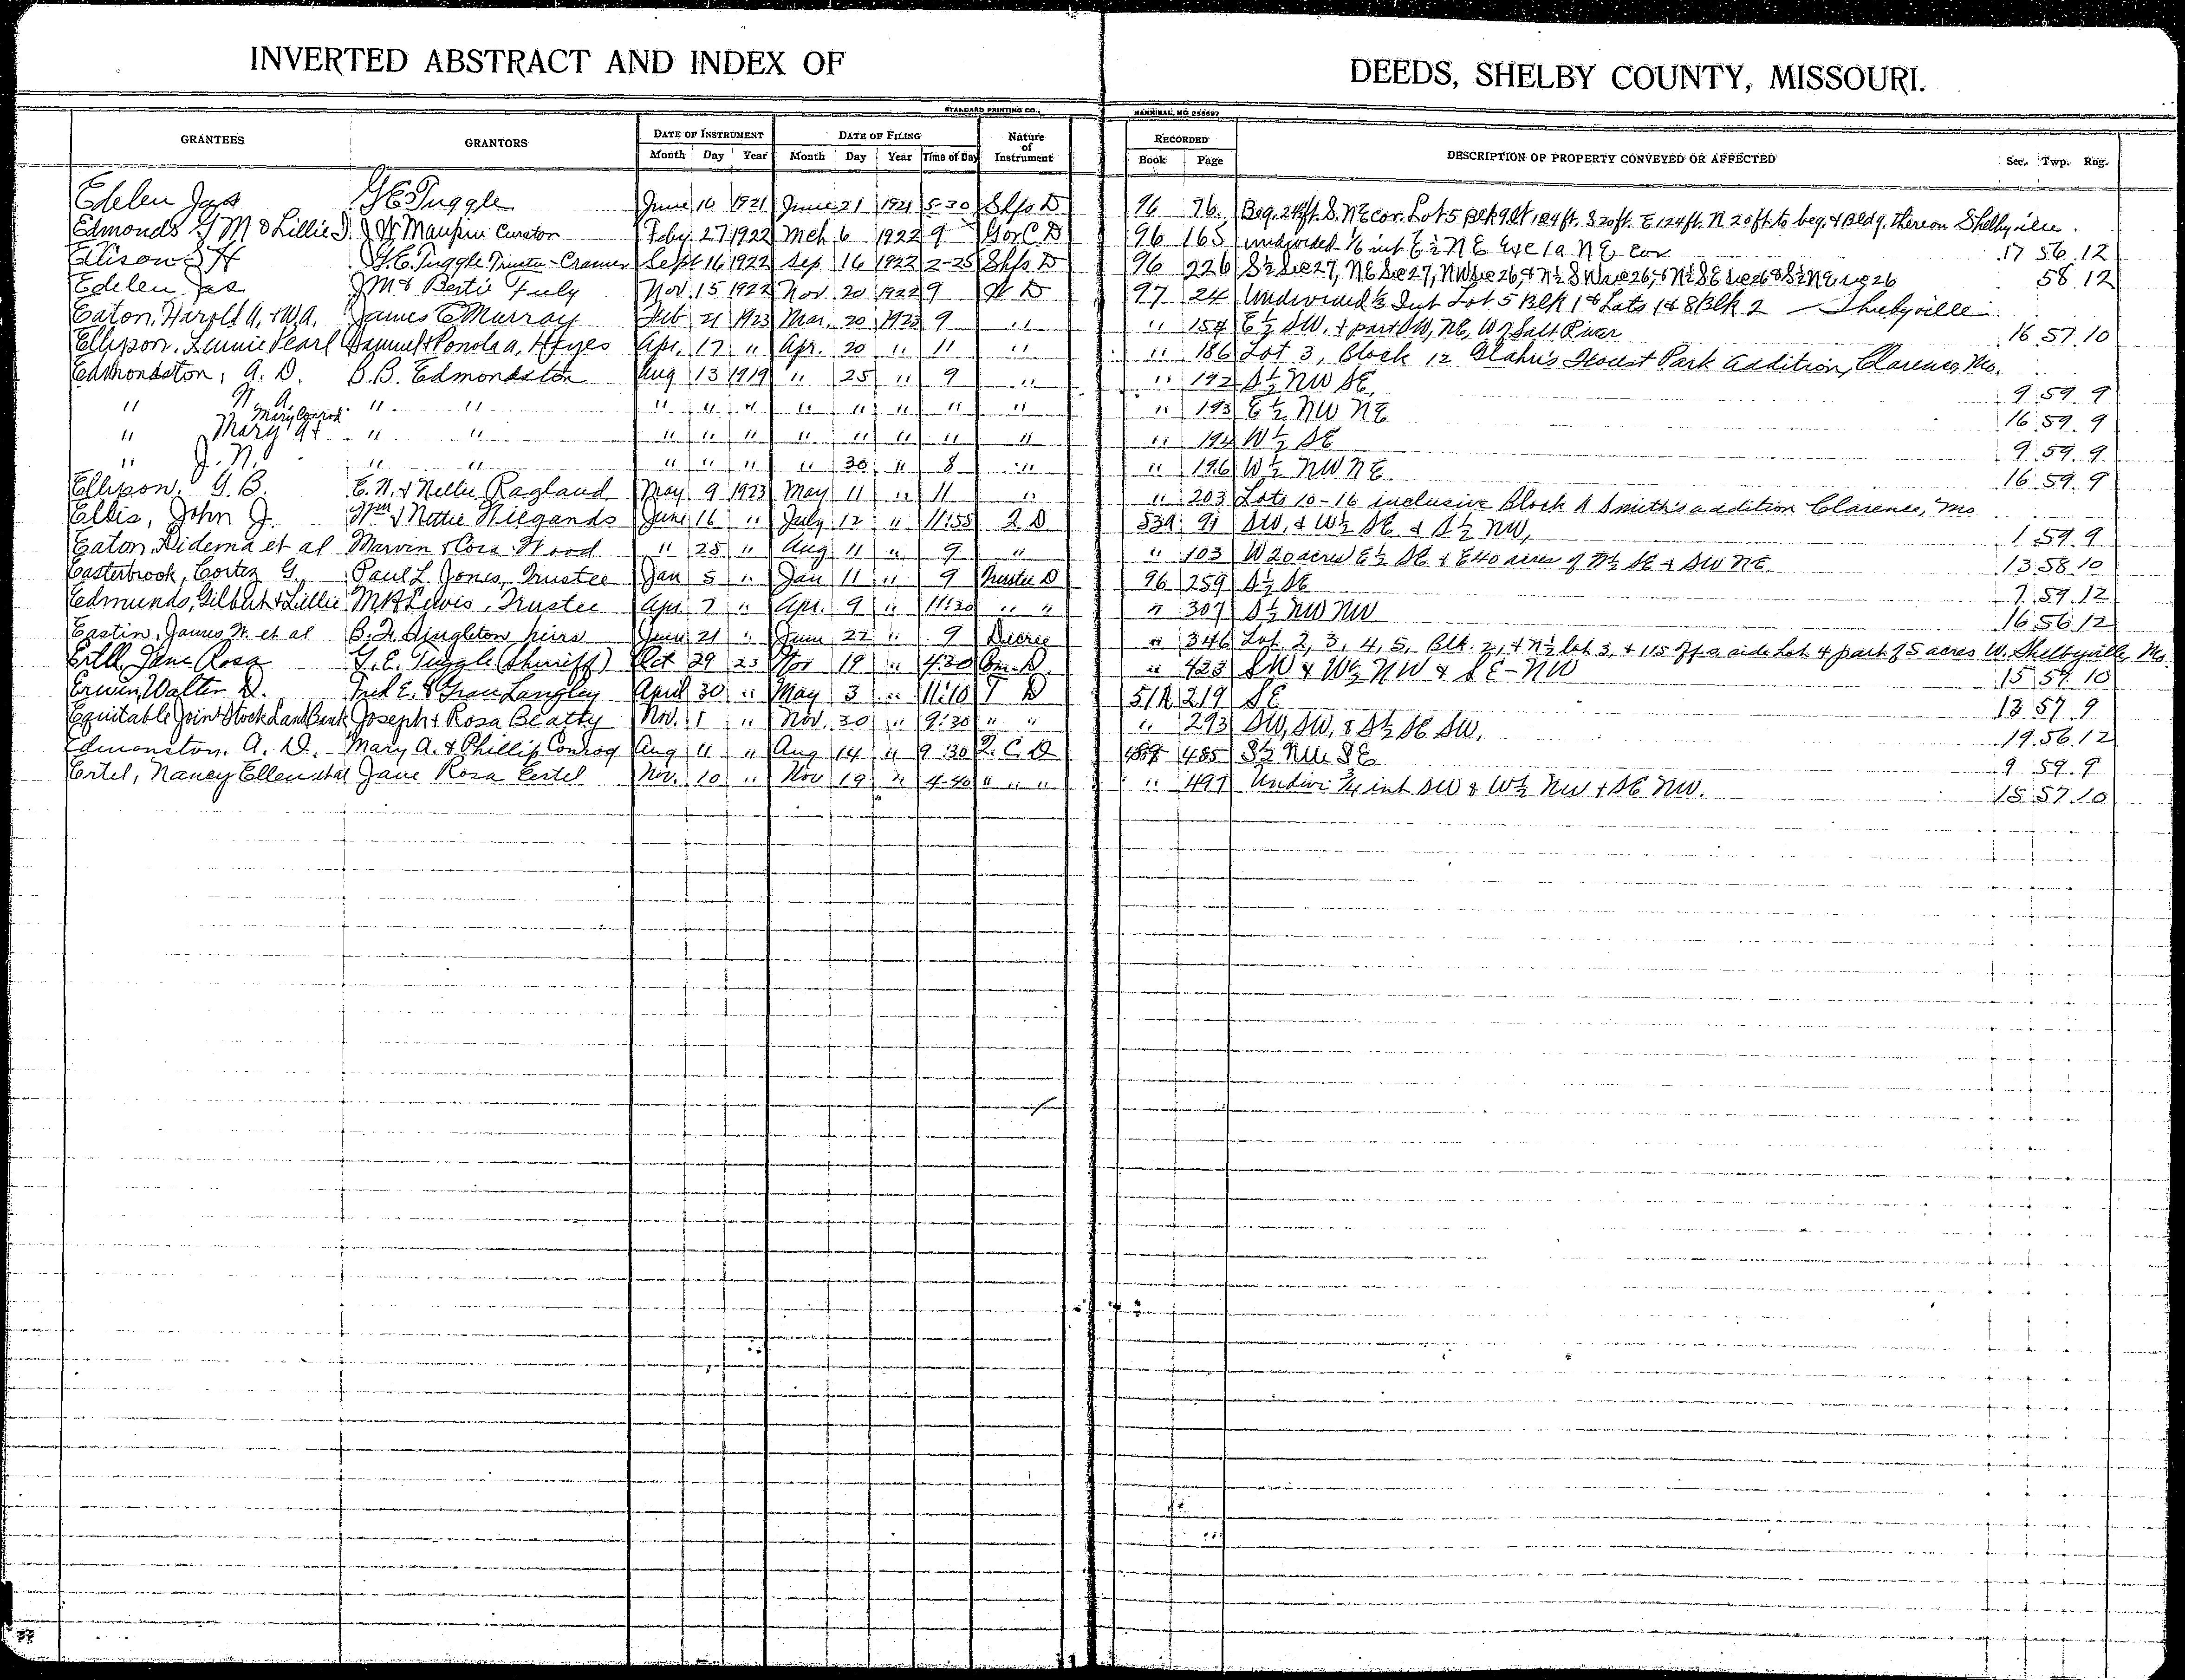 INVERTED ABSTRACT AND INDEX OF DEEDS, SHELBY COUNTY, MISSOURI.
STANDARD PRINTING CO., HANNIBAL, MO 256597
GRANTEES GRANTORS DATE OF INSTRUMENT DATE OF FILING Nature of Instrument RECORDED DESCRIPTION OF PROPERTY CONVEYED OR AFFECTED Sec. Twp. Rng.
Month Day Year Month Day Year Time of Day Book Page
Edelen Jas G E Tuggle June 16 1921 June 21 1921 5-30 Shfs D 96 76 Beg. 24½ft. S. NE cor. Lot 5 Blk 9 124 ft. S 20ft. E 124ft. N 20ft to beg. & Bldg. thereon Shelbyville.
Edmonds G M & Lillie D. J W Maupin Curator Feby 27 1922 Mch 6 1922 9 Gor C D 96 165 undivided 1/6 int E½ NE Exc 1a NE cor 17 56 12
Ellison S H G. E. Tuggle Trustee-Cramer Sept 16 1922 Sep 16 1922 2-25 Shfs D 96 226 S½ Sec 27, NE Sec 27, NW Sec 26, & N½ SW Sec 26 & N½ SE Sec 26 & S½ NE Sec 26 58 12
Edelen Jas J M & Bertie Tuly Nov. 15 1922 Nov. 20 1922 9 W D 97 24 Undivided ½ Int Lot 5 Blk 1 & Lots 1 & 8 Blk 2 - Shelbyville
Eaton, Harold A. & W.A. James E Murray Feb 21 1923 Mar. 20 1923 9 " " 154 E½ SW, & part SW, NE, W of Salt River 16 57 10
Ellipson, Lennie Pearl Samuel & Ponola A. Hayes Apr. 17 " Apr. 20 " 11 " " 186 Lot 3, Block 12 Forest Park Addition, Clarence, Mo.
Edmondston, A. D. B. B. Edmondston Aug 13 1919 " 25 " 9 " " 192 S½ NW SE 9 59 9
" W. A. " " " " " " " " " " " 193 E½ NW NE 16 59 9
Mary Conrod
" Mary A " " " " " " " " " " " 194 W½ SE 9 59 9
" J. N. " " " " " " 30 " 8 " " 196 W½ NW NE 16 59 9
Ellipson, G. B. E. N. & Nellie Ragland May 9 1923 May 11 " 11 " " 203 Lots 10-16 inclusive Block A Smith's addition Clarence, Mo
Ellis, John J. Wm & Nettie Wiegands June 16 " July 12 " 11:55 Q D 534 91 SW, & W½ SE & S½ NW, 1 59 9
Eaton, Didema et al Marvin & Cora Wood " 25 " Aug 11 " 9 " " 103 W 20 acres E½ SE & E 40 acres of W½ SE & SW NE 13 58 10
Easterbrook, Cortez G. Paul L Jones, Trustee Jan 5 " Jan 11 " 9 Trustee D 96 259 S½ SE 7 59 12
Edmunds, Gilbert & Lillie M H Lewis, Trustee Apr 7 " Apr. 9 " 11:30 " " " 307 S½ NW NW 16 56 12
Eastin, James W. et al B. F. Singleton, heirs June 21 " June 22 " 9 Decree " 346 Lot 2, 3, 4, 5, Blk. 2, & N½ lot 3, & 115 ft a side lot 4 part of 5 acres W. Shelbyville, Mo.
Ertll Jane Rosa G. E. Tuggle (Sheriff) Oct 29 23 Nov 19 " 4:30 Com. D. " 423 SW & W½ NW & SE-NW 15 57 10
Erwin, Walter D. Fred E. & Fran Langley April 30 " May 3 " 11:10 T D 51A 219 SE 13 57 9
Equitable Joint Stock Land Bank Joseph & Rosa Beatty Nov. 1 " Nov. 30 " 9:30 " " " 293 SW, SW, & S½ SE SW, 19 56 12
Edmonston, A. D. Mary A. & Phillip Conrod Aug 11 " Aug 14 " 9 30 Q. C. D 485 S½ NW SE 9 59 9
Ertel, Nancy Ellen et al Jane Rosa Ertel Nov. 10 " Nov 19 " 4-40 " " " " 497 Undivi ¾ int SW & W½ NW & SE NW. 15 57 10